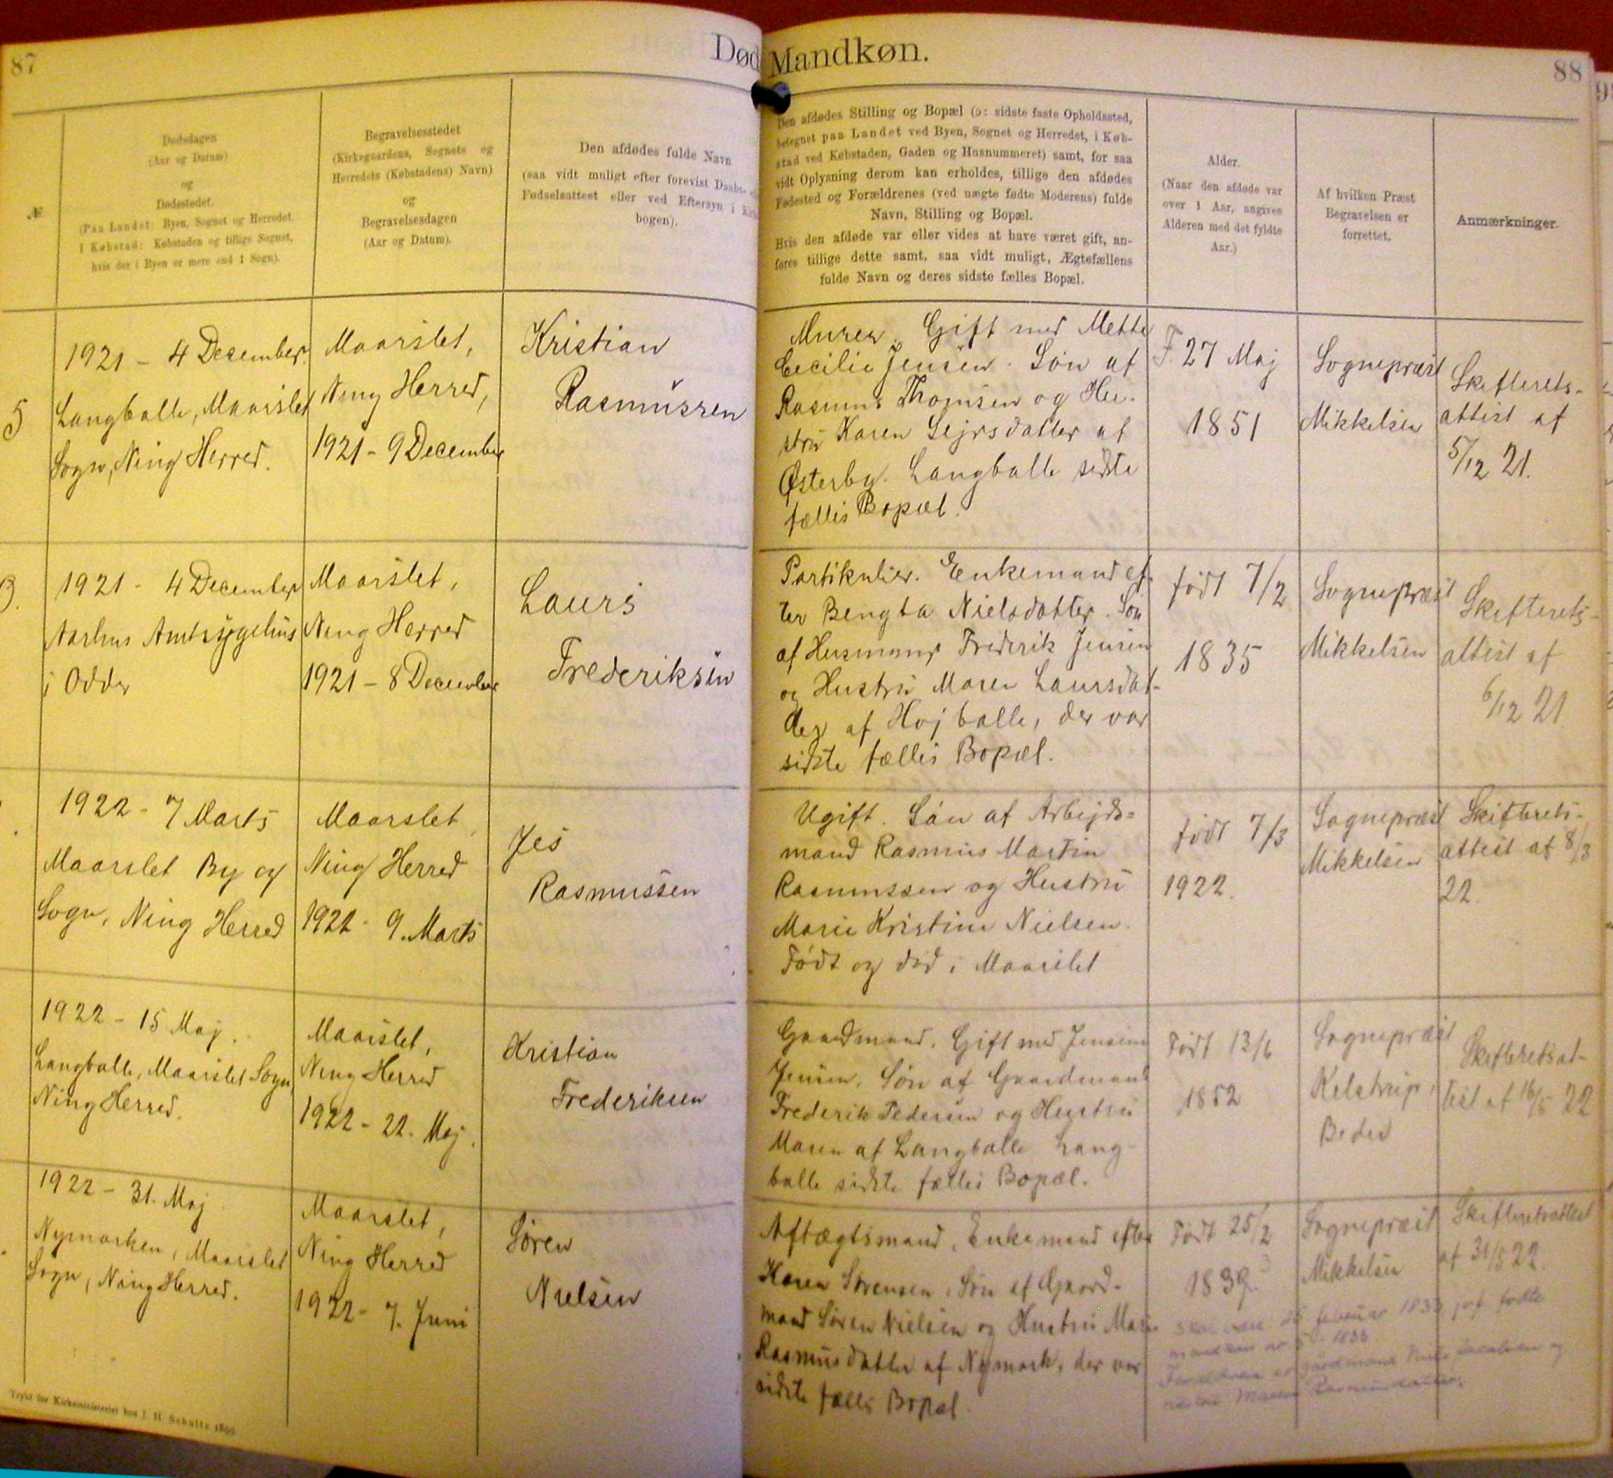 87
Død
№
Dødsdagen
(Aar og Datum)
og
Dødsstedet.
(Paa Landet: Byen, Sognet og Herredet.
I Købstad: Købstaden og tillige Sognet,
hvis der i Byen er mere end 1 Sogn).
Begravelsesstedet
(Kirkegaardens, Sognets og
Herredets (Købstadens) Navn)
og
Begravelsesdagen
(Aar og Datum).
Den afdødes fulde Navn
(saa vidt muligt efter forevist Daabs-
Fødselsattest eller ved Eftersyn i
bogen).
Mandkøn.
88
Den afdødes Stilling og Bopæl (ɔ: sidste faste Opholdssted,
betegnet paa Landet ved Byen, Sognet og Herredet, i Køb-
stad ved Købstaden, Gaden og Husnummeret) samt, for saa
vidt Oplysning derom kan erholdes, tillige den afdødes
Fødested og Forældrenes (ved uægte fødte Moderens) fulde
Navn, Stilling og Bopæl.
Hvis den afdøde var eller vides at have været gift, an-
føres tillige dette samt, saa vidt muligt, Ægtefællens
fulde Navn og deres sidste fælles Bopæl.
Alder.
(Naar den afdøde var
over 1 Aar, angives
Alderen med det fyldte
Aar.)
Af hvilken Præst
Begravelsen er
forrettet.
Anmærkninger.
5
1921 - 4 December
Langballe, Maarslet
Sogn, Ning Herred.
Maarslet,
Ning Herred,
1921 - 9 December
Kristian
Rasmussen
Murer. Gift med Mette
Cecilie Jensen. Søn af
Rasmus Thomsen og Hu-
stru Karen Sejrsdatter af
Østerby. Langballe sidste
fælles Bopæl.
F. 27 Maj
1851
Sognepræst
Mikkelsen
Skifterets-
attest af
5/12 21.
1921 - 4 December
Aarhus Amtssygehus
i Odder
Maarslet,
Ning Herred
1921 - 8 December
Laurs
Frederiksen
Partikulier. Enkemand ef-
ter Bengta Nielsdatter. Søn
af Husmand Frederik Jensen
og Hustru Maren Laursdat-
ter af Hojballe, der var
sidste fælles Bopæl.
født 7/2
1835
Sognepræst
Mikkelsen
Skifterets-
attest af
6/12 21
1922 - 7 Marts
Maarslet By og
Sogn, Ning Herred
Maarslet,
Ning Herred
1922 - 9. Marts
Jes
Rasmussen
Ugift. Søn af Arbejds=
mand Rasmus Martin
Rasmussen og Hustru
Marie Kristine Nielsen.
Født og død i Maarslet
født 7/3
1922.
Sognepræst
Mikkelsen
Skifterets-
attest af 8/3
22.
1922 - 15 Maj.
Langballe, Maarslet Sogn,
Ning Herred.
Maarslet,
Ning Herred
1922 - 22. Maj.
Kristian
Frederiksen
Gaardmand. Gift med Jensine
Jensen. Søn af Gaardmand
Frederik Pedersen og Hustru
Maren af Langballe. Lang-
balle sidste fælles Bopæl.
Født 13/6
1852
Sognepræst
Kelstrup,
Beder
Skifteretsat-
test af 16/5 22
1922 - 31. Maj
Nymarken, Maarslet
Sogn, Ning Herred.
Maarslet,
Ning Herred
1922 - 7. Juni
Søren
Nielsen
Aftægtsmand, Enkemand efter
Karen Sørensen, Søn af Gaard-
mand Søren Nielsen og Hustru Maren
Rasmusdatter af Nymark, der var
sidste fælles Bopæl.
Født 25/2
1839
Sognepræst
Mikkelsen
Skifteretsattest
af 31/5 22.
skal være februar 1833 jvf. fødte
mandkøn
Forældrene er gårdmand
hustru Maren Rasmusdatter.
Trykt for Kirkeministeriet hos J. H. Schultz